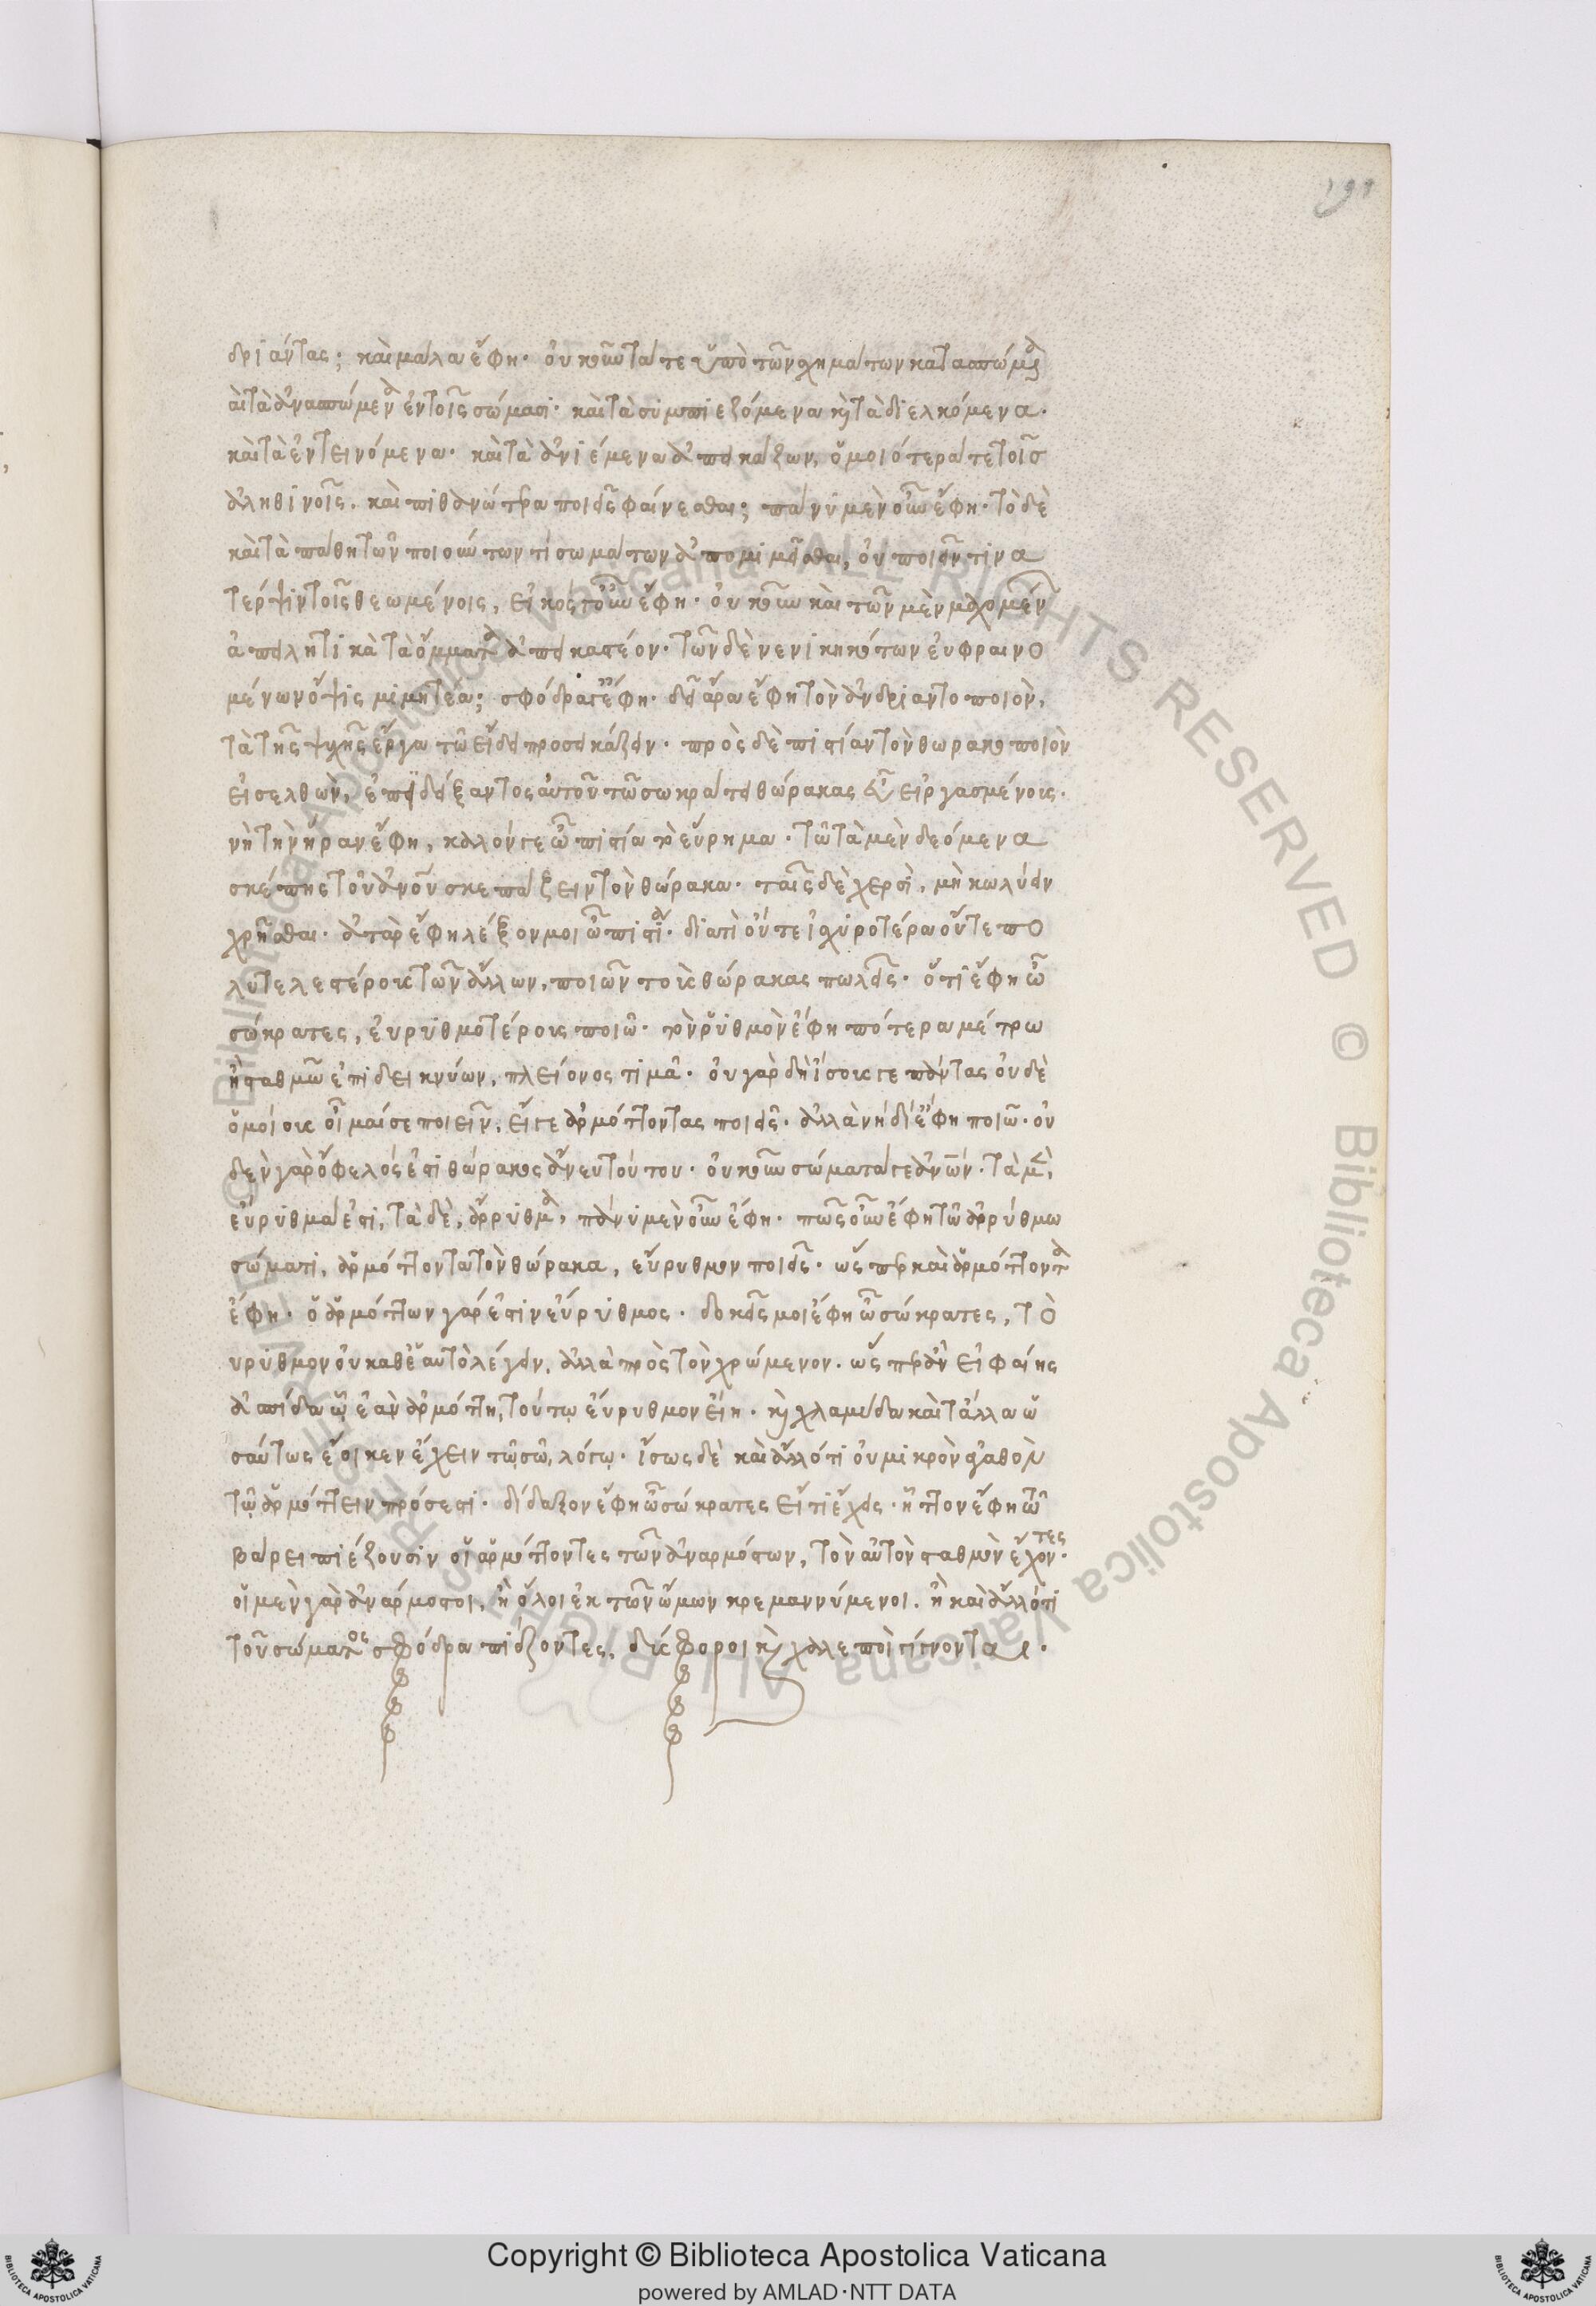 191
δριάντας; καὶ μάλα ἔφη. οὐκοῦν τά τε ὑπὸ τῶν σχημάτων κατασπώμενα
καὶ τὰ ἀνασπώμενα ἐν τοῖς σώμασι. καὶ τὰ συμπιεζόμενα καὶ τὰ διελκόμενα.
καὶ τὰ ἐντεινόμενα. καὶ τὰ ἀνιέμενα ἀπεικάζων, ὁμοιότερά τε τοῖς
ἀληθινοῖς. καὶ πιθανώτερα ποιεῖς φαίνεσθαι; πάνυ μὲν οὖν ἔφη. τὸ δὲ
καὶ τὰ πάθη τῶν ποιούντων τι σωμάτων ἀπομιμεῖσθαι, οὐ ποιεῖ τινα
τέρψιν τοῖς θεωμένοις, εἰκός γ' οὖν ἔφη. οὐκοῦν καὶ τῶν μὲν μαχομένων
ἀπειλητικὰ τὰ ὄμματα ἀπεικαστέον. τῶν δὲ νενικηκότων εὐφραινο
μένων ὄψις μιμητέα; σφόδρα γ' ἔφη. δεῖ ἄρα ἔφη τὸν ἀνδριαντοποιὸν,
τὰ τῆς ψυχῆς ἔργα τῷ εἴδει προσεικάζειν. πρὸς δὲ πιστίαν τὸν θωρακοποιὸν
εἰσελθὼν, ἐπιδείξαντος αὐτοῦ τῶ σωκράτει θώρακας εὖ εἰργασμένους.
νὴ τὴν ἥραν ἔφη, καλόν γε ὦ πιστία τὸ εὕρημα. τῶ τὰ μὲν δεόμενα
σκέπης τοῦ ἀνοῦ σκεπάζειν τὸν θώρακα. ταῖς δὲ χερσὶ, μὴ κωλύειν
χρῆσθαι. ἀτὰρ ἔφη λέξον μοι ὦ πιστία. διατὶ οὔτε ἰσχυροτέρα οὔτε πο
λυτελεστέρους τῶν ἄλλων, ποιῶν τοὺς θώρακας πωλεῖς. ὅτι ἔφη ὦ
σώκρατες, εὐρυθμοτέρους ποιῶ. τὸν ῥυθμὸν ἔφη πότερα μέτρω
ἢ σταθμῶ ἐπιδεικνύων, πλείονος τιμᾶ. οὐ γὰρ δὴ ἴσους γε πάντας οὐδὲ
ὁμοίους οἶμαί σε ποιεῖν, εἴ γε ἁρμόττοντας ποιεῖς. ἀλλὰ νὴ δί' ἔφη ποιῶ. οὐ
δὲν γὰρ ὄφελός ἐστι θώρακος ἄνευ τούτου. οὐκοῦν σώματά γε ἀνῶν. τὰ μὲν,
εὔρυθμά ἐστι, τὰ δὲ, ἄρρυθμα, πάνυ μὲν οὖν ἔφη. πῶς οὖν ἔφη τῶ ἀρρύθμω
σώματι, ἁρμόττοντα τὸν θώρακα, εὔρυθμον ποιεῖς. ὥσπερ καὶ ἁρμόττοντα
ἔφη. ὁ ἁρμόττων γάρ ἐστιν εὔρυθμος. δοκεῖς μοι ἔφη ὦ σώκρατες, τὸ
υρυθμον οὐ καθ' ἑαυτὸ λέγειν, ἀλλὰ πρὸς τὸν χρώμενον. ὥσπερ ἂν εἰ φαίης
ἀσπίδα ᾧ ἐὰν ἁρμόττη, τούτῳ εὔρυθμον εἴη. καὶ χλαμύδα καὶ τἄλλα ὡ
σαύτως ἔοικεν ἔχειν τῷ σῷ λόγῳ. ἴσως δὲ καὶ ἄλλό τι οὐ μικρὸν ἀγαθὸν
τῷ ἁρμόττειν πρόσεστι. δίδαξον ἔφη ὦ σώκρατες εἴ τι ἔχεις. ἧττον ἔφη τῶ
βάρει πιέζουσιν οἱ ἁρμόττοντες τῶν ἀναρμόστων, τὸν αὐτὸν σταθμὸν ἔχοντες.
οἱ μὲν γὰρ ἀνάρμοστοι, ἢ ὅλοι ἐκ τῶν ὤμων κρεμαννύμενοι. ἢ καὶ ἄλλό τι
τοῦ σώματος σφόδρα πιέζοντες, δύσφοροι καὶ χαλεποὶ γίγνονται.
© Biblioteca Apostolica Vaticana ALL RIGHTS RESERVED © Biblioteca Apostolica Vaticana ALL RIGHTS RESERVED
Copyright © Biblioteca Apostolica Vaticana
powered by AMLAD·NTT DATA